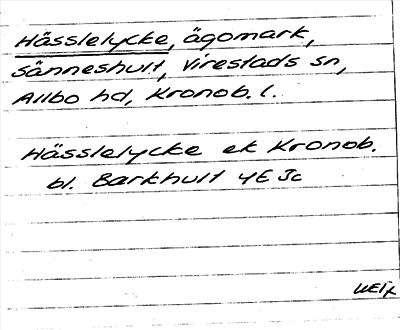 Hässlelycke, ägomark,
Sånneshult, Virestads sn,
Allbo hd, Kronob. l.
Hässlelycke ek Kronob.
bl. Barkhult 4E 3c